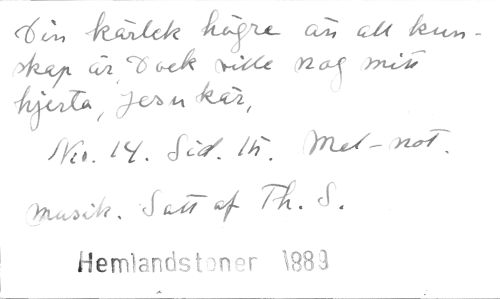 Din kärlek högre än all kun-
skap är, Dock ville nog mitt
hjerta, Jesu kär,
No. 14. Sid. 15. Mel-not.
musik. Satt af Th. S.
Hemlandstoner 1889